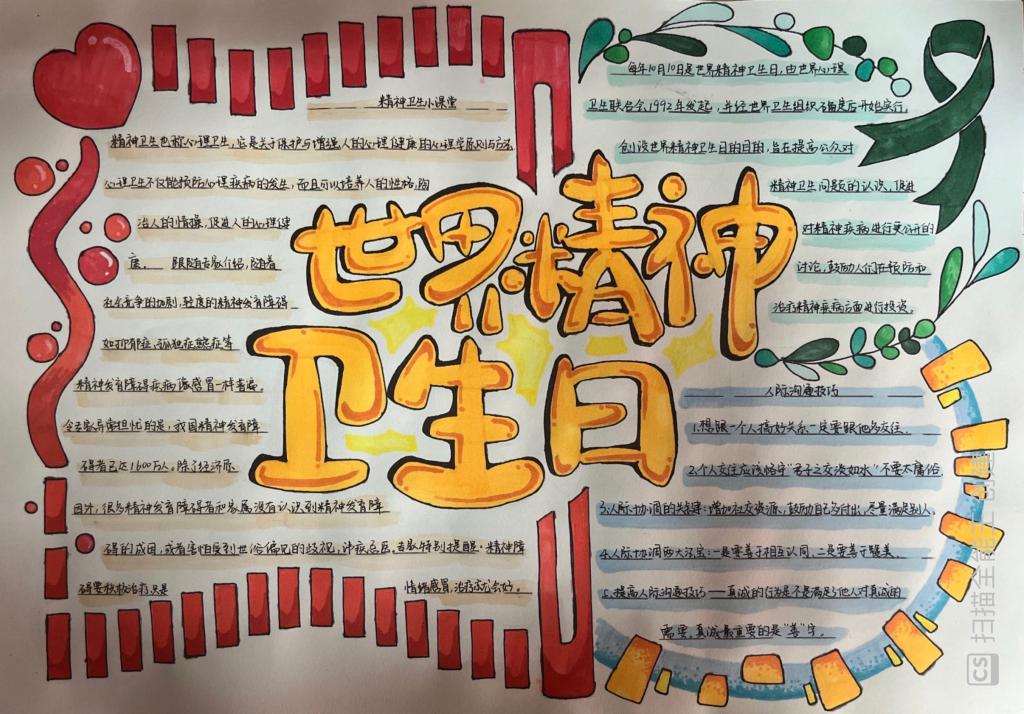 世界精神
卫生日
精神卫生小课堂
精神卫生也称心理卫生,它是关于保护与增强人的心理健康的心理学原则与方法
心理卫生不仅能预防心理疾病的发生,而且可以培养人的性格,陶
冶人的情操,促进人的心理健
康。 跟随专家介绍,随着
社会竞争的加剧,轻度的精神发育障碍
如抑郁症,孤独症焦症等
精神发育障碍疾病像感冒一样普遍,
令专家异常担忧的是,我国精神发育障
碍者已达1600万人。除了经济原
因外,很多精神发育障碍者和家属没有认识到精神发育障
碍的成因,或者害怕受到世俗偏见的歧视,讳疾忌医,专家特别提醒:精神障
碍要积极治疗只是 情绪感冒,治疗就会好。
每年10月10日是世界精神卫生日,由世界心理
卫生联合会1992年发起,并经世界卫生组织确定后开始实行,
创设世界精神卫生日的目的,旨在提高公众对
精神卫生问题的认识,促进
对精神疾病进行更公开的
讨论,鼓励人们在预防和
治疗精神疾病方面进行投资。
人际沟通技巧
1.想跟一个人搞好关系一定要跟他多交往.
2.个人交往应该恪守“君子之交淡如水”不要太庸俗
3.人际协调的关键:增加社交资源,鼓励自己多付出,尽量满足别人.
4.人际协调两大法宝:一是要善于相互认同,二是要善于赞美.
5.提高人际沟通技巧——真诚的行为是不是满足了他人对真诚的
需要,真诚最重要的是“善”字.
CS 扫描全能王 创建